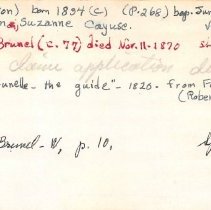 on) born 1894 (c) (P.268) bap. Jun
Suzanne Cayuse.
Brunel (c. 77) died Nov. 11-1870
claim application
unelle - the guide" - 1820. from F
(Rober
Brunel - W, p. 10,